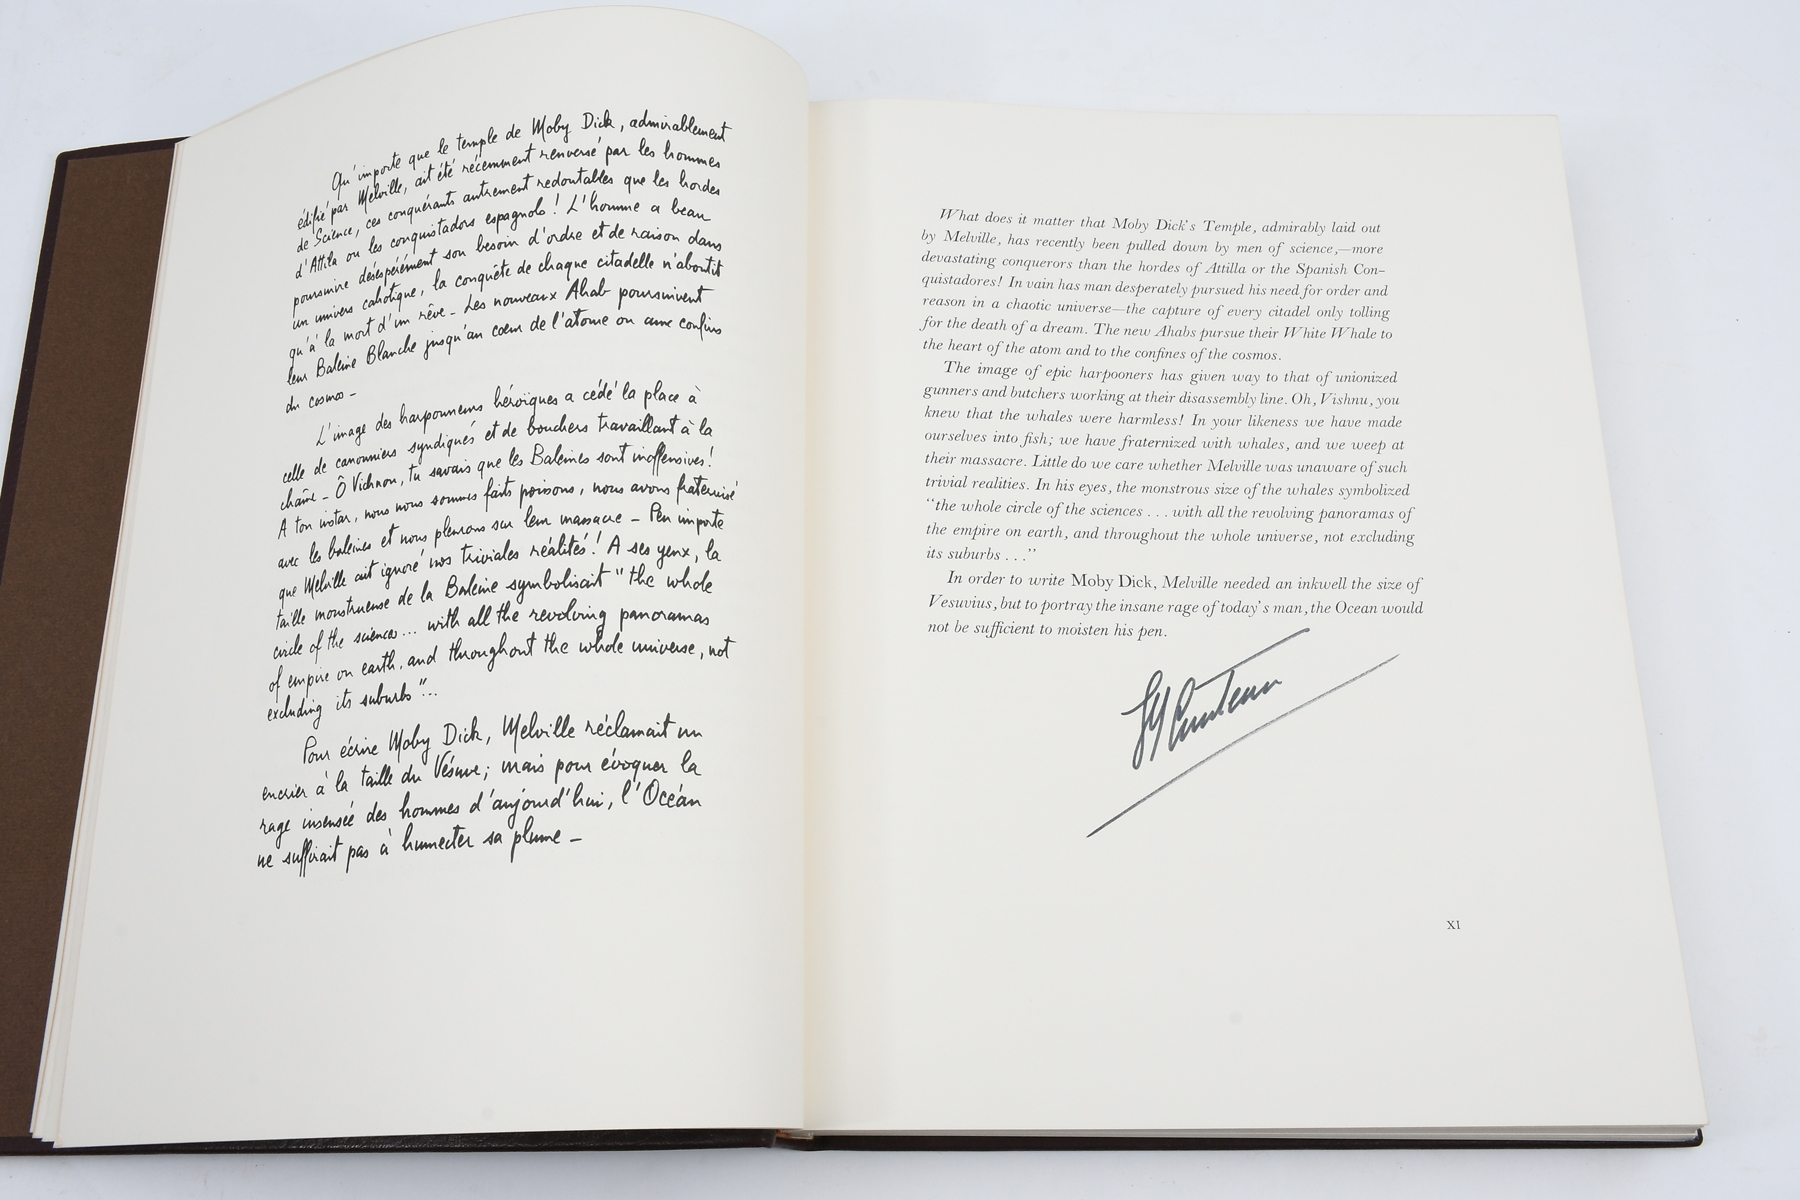 Qu'importe que le temple de Moby Dick, admirablement
édifié par Melville, ait été récemment renversé par les hommes
de Science, ces conquérants autrement redoutables que les hordes
d'Attila ou les conquistadors espagnols ! L'homme a beau
poursuivre désespérément son besoin d'ordre et de raison dans
un univers cahotique, la conquête de chaque citadelle n'aboutit
qu'à la mort d'un rêve - Les nouveaux Ahab poursuivent
leur Baleine Blanche jusqu'au cœur de l'atome ou aux confins
du cosmos -
L'image des harponneurs héroïques a cédé la place à
celle de canonniers syndiqués et de bouchers travaillant à la
chaîne - Ô Vichnou, tu savais que les Baleines sont inoffensives !
A ton instar, nous nous sommes faits poissons, nous avons fraternisé
avec les baleines et nous pleurons sur leur massacre - Peu importe
que Melville ait ignoré nos triviales réalités ! A ses yeux, la
taille monstrueuse de la Baleine symbolisait "the whole
circle of the sciences ... with all the revolving panoramas
of empire on earth, and throughout the whole universe, not
excluding its suburbs"...
Pour écrire Moby Dick, Melville réclamait un
encrier à la taille du Vésuve ; mais pour évoquer la
rage insensée des hommes d'aujourd'hui, l'Océan
ne suffirait pas à humecter sa plume -
What does it matter that Moby Dick's Temple, admirably laid out
by Melville, has recently been pulled down by men of science,—more
devastating conquerors than the hordes of Attilla or the Spanish Con-
quistadores! In vain has man desperately pursued his need for order and
reason in a chaotic universe—the capture of every citadel only tolling
for the death of a dream. The new Ahabs pursue their White Whale to
the heart of the atom and to the confines of the cosmos.
The image of epic harpooners has given way to that of unionized
gunners and butchers working at their disassembly line. Oh, Vishnu, you
knew that the whales were harmless! In your likeness we have made
ourselves into fish; we have fraternized with whales, and we weep at
their massacre. Little do we care whether Melville was unaware of such
trivial realities. In his eyes, the monstrous size of the whales symbolized
"the whole circle of the sciences . . . with all the revolving panoramas of
the empire on earth, and throughout the whole universe, not excluding
its suburbs . . ."
In order to write Moby Dick, Melville needed an inkwell the size of
Vesuvius, but to portray the insane rage of today's man, the Ocean would
not be sufficient to moisten his pen.
XI